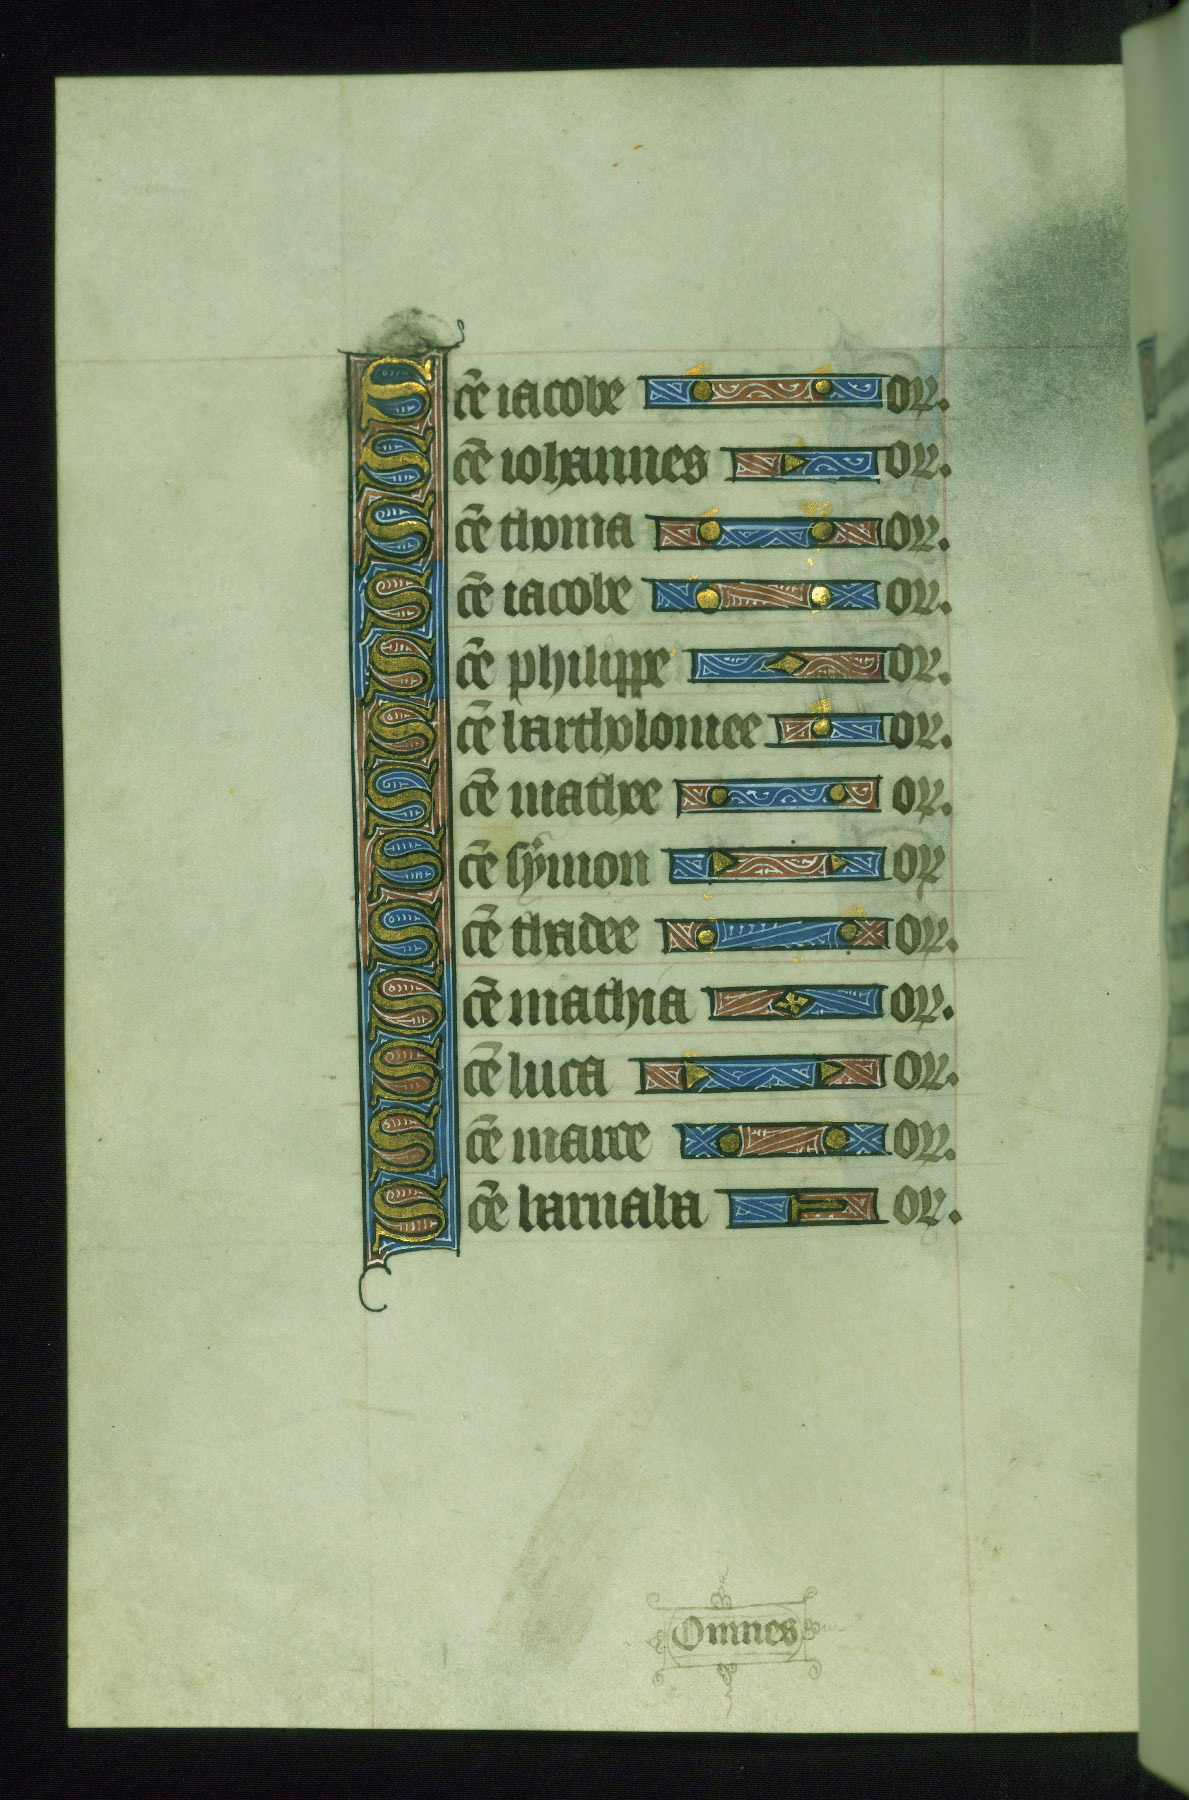 Sc̄e iacobe or.
Sc̄e iohannes or.
Sc̄e thoma or.
Sc̄e iacobe or.
Sc̄e philippe or.
Sc̄e bartholomee or.
Sc̄e mathee or.
Sc̄e symon or
Sc̄e thadee or.
Sc̄e mathia or.
Sc̄e luca or.
Sc̄e marce or.
Sc̄e barnaba or.
Omnes